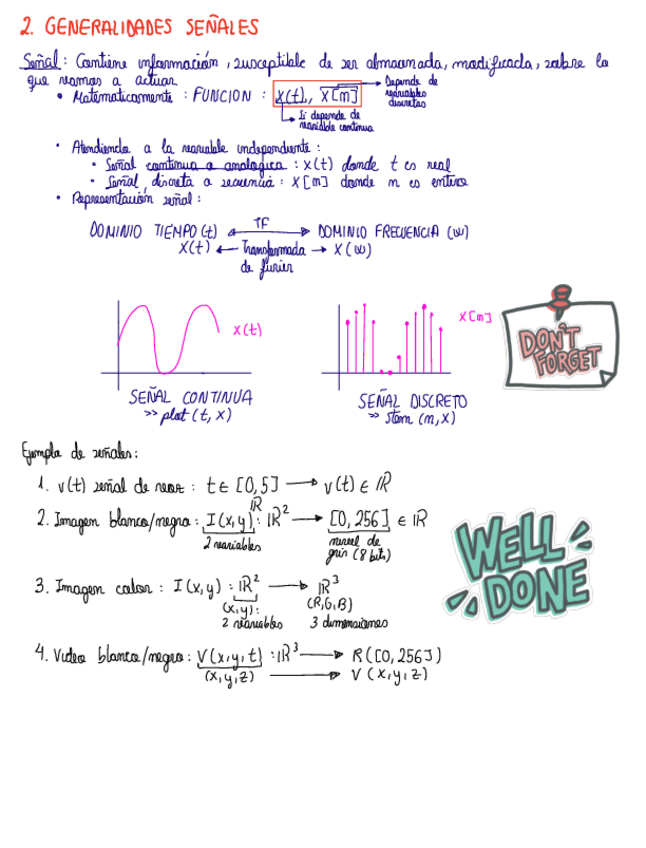 2. GENERALIDADES SEÑALES
Señal: Contiene información, susceptible de ser almacenada, modificada, sobre la
que vamos a actuar
• Matematicamente: FUNCION: X(t), X[m]
Depende de
variables
discretas
Si depende de
variable continua
• Atendiendo a la variable independiente:
• Señal continua o analogica: X(t) donde t es real
• Señal discreta o secuencia: X[m] donde m es entero
• Representación señal:
DOMINIO TIEMPO (t) TF DOMINIO FRECUENCIA (ω)
X(t) ← Transformada → X(ω)
de furier
X(t)
X[m]
DON'T
FORGET
SEÑAL CONTINUA
>> plot (t, X)
SEÑAL DISCRETO
>> stem (m, X)
Ejemplo de señales:
1. v(t) señal de voz: t ∈ [0,5] → v(t) ∈ ℝ
2. Imagen blanco/negro: I(x,y): ℝ² → [0,256] ∈ ℝ
ℝ
2 variables
nivel de
gris (8 bits)
WELL
DONE
3. Imagen color: I(x,y): ℝ² → ℝ³
(x,y):
2 variables
(R,G,B)
3 dimensiones
4. Video blanco/negro: V(x,y,t): ℝ³ → R([0,256])
(x,y,z) → V(x,y,z)